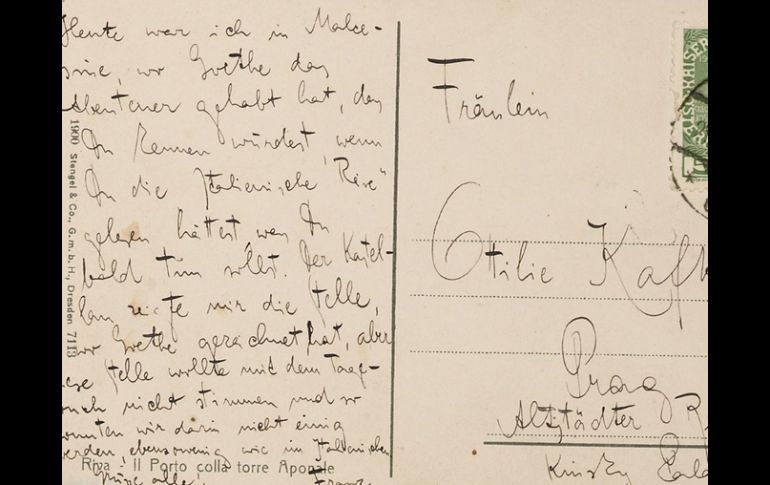 Heute war ich in Malce-
sine, wo Goethe das
Abenteuer gehabt hat, das
Du kennen würdest, wenn
Du die „Italienische Reise"
gelesen hättest, was Du
bald tun sollst. Der Kastel-
lan zeigte mir die Stelle,
wo Goethe gezeichnet hat, aber
diese Stelle wollte mit dem Tage-
buch nicht stimmen und so
konnten wir darin nicht einig
werden, ebensowenig wie im Italienischen
Grüße alle! Franz
Riva - Il Porto colla torre Aponale
1900 Stengel & Co., G. m. b. H., Dresden 7113
KAISER
Fräulein
Ottilie Kafk
Prag
Altstädter R
Kinsky Pala